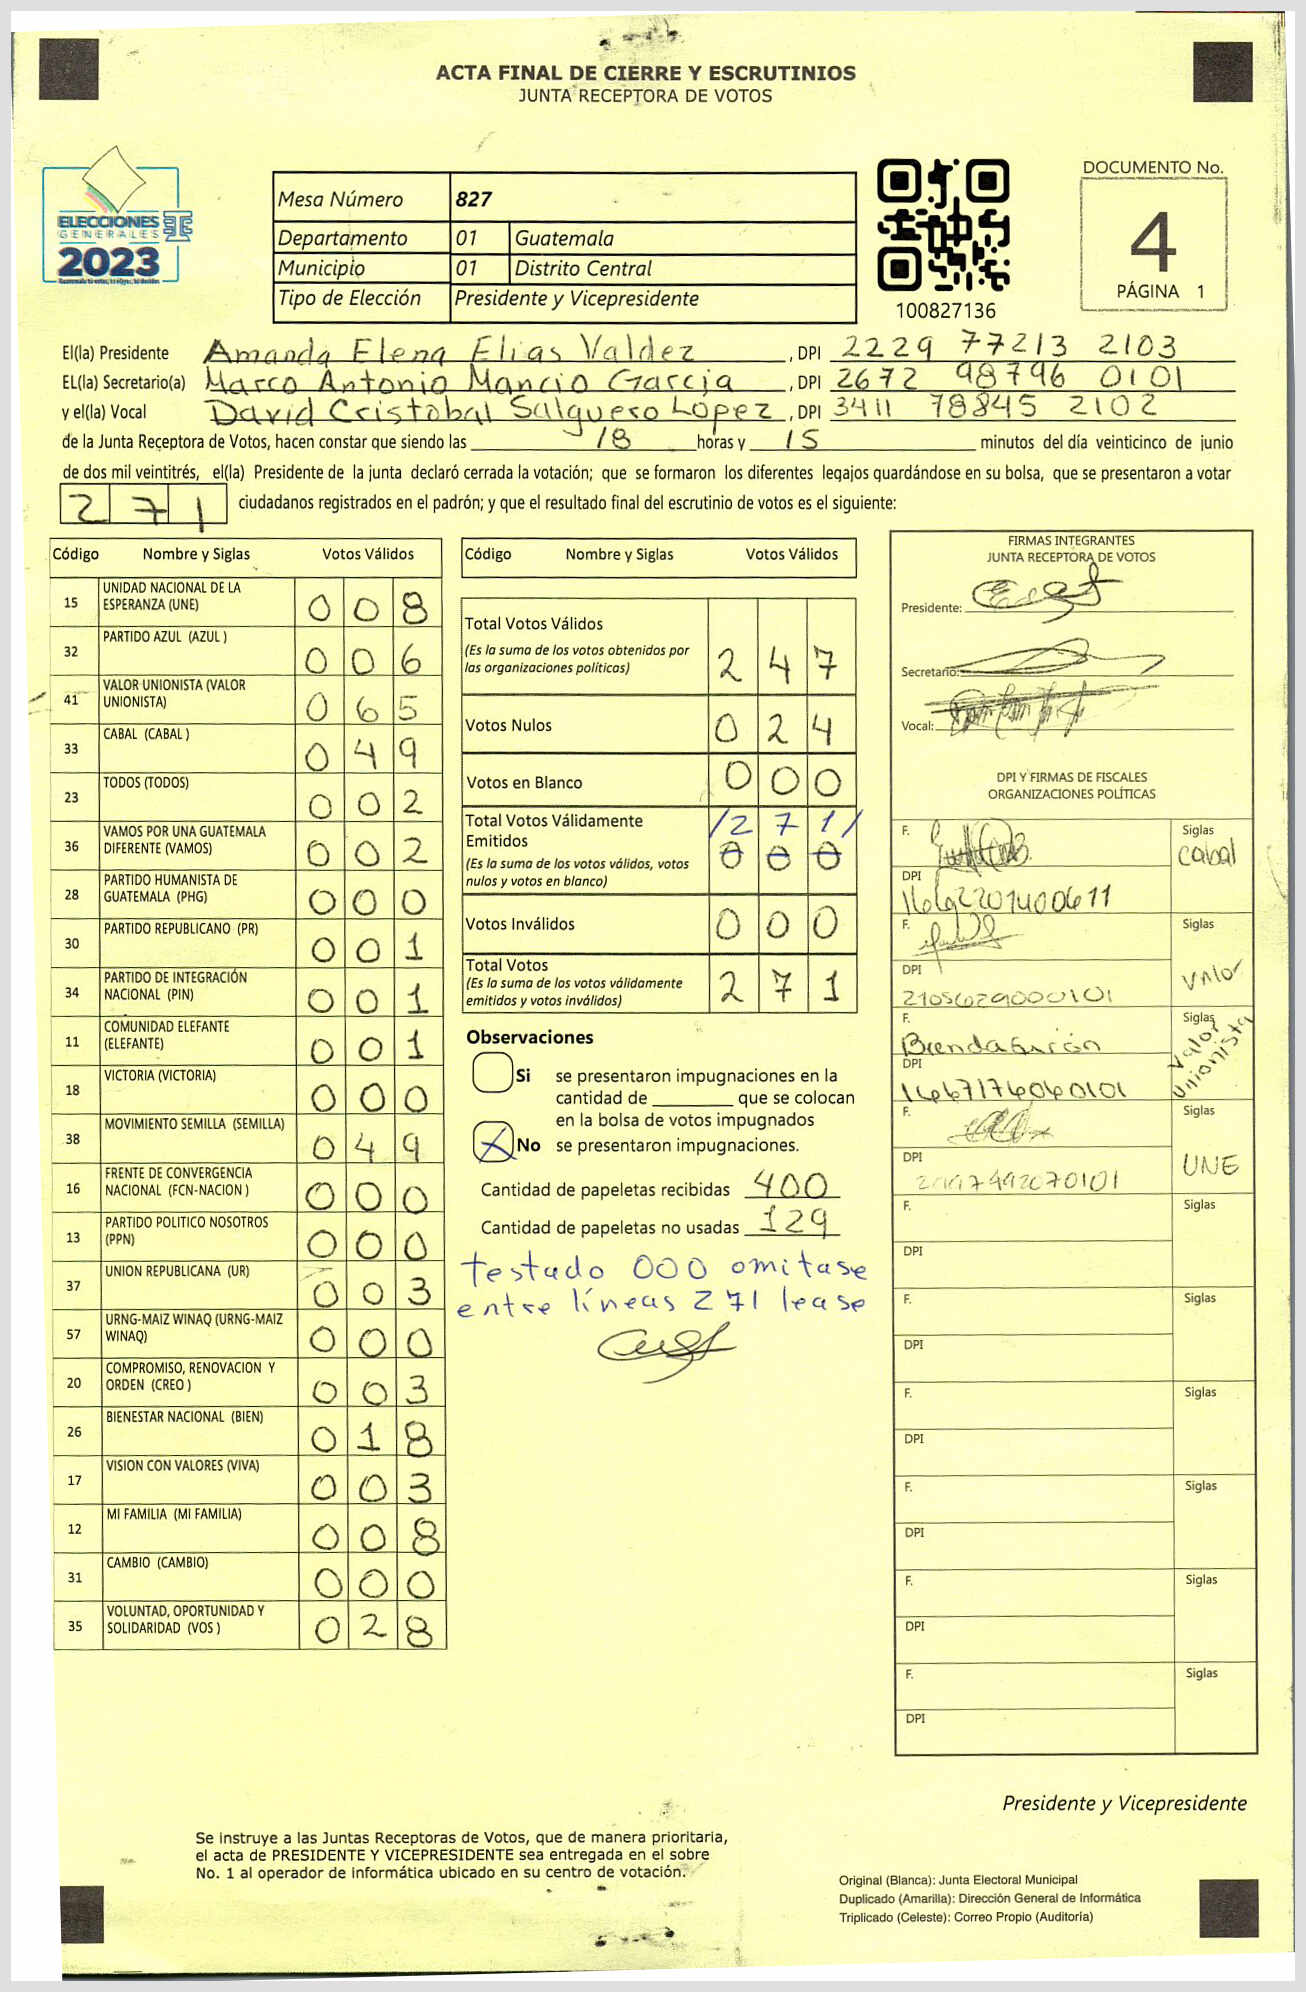 ACTA FINAL DE CIERRE Y ESCRUTINIOS
JUNTA RECEPTORA DE VOTOS
ELECCIONES
GENERALES
2023
Mesa Número 827
Departamento 01 Guatemala
Municipio 01 Distrito Central
Tipo de Elección Presidente y Vicepresidente
100827136
DOCUMENTO No.
4
PÁGINA 1
El(la) Presidente Amanda Elena Elias Valdez, DPI 2229 77213 2103
EL(la) Secretario(a) Marco Antonio Mancio Garcia, DPI 2672 98796 0101
y el(la) Vocal David Cristobal Salguero Lopez, DPI 3411 78845 2102
de la Junta Receptora de Votos, hacen constar que siendo las 18 horas y 15 minutos del día veinticinco de junio
de dos mil veintitrés, el(la) Presidente de la junta declaró cerrada la votación; que se formaron los diferentes legajos guardándose en su bolsa, que se presentaron a votar
271 ciudadanos registrados en el padrón; y que el resultado final del escrutinio de votos es el siguiente:
Código Nombre y Siglas Votos Válidos
15 UNIDAD NACIONAL DE LA ESPERANZA (UNE) 008
32 PARTIDO AZUL (AZUL ) 006
41 VALOR UNIONISTA (VALOR UNIONISTA) 065
33 CABAL (CABAL ) 049
23 TODOS (TODOS) 002
36 VAMOS POR UNA GUATEMALA DIFERENTE (VAMOS) 002
28 PARTIDO HUMANISTA DE GUATEMALA (PHG) 000
30 PARTIDO REPUBLICANO (PR) 001
34 PARTIDO DE INTEGRACIÓN NACIONAL (PIN) 001
11 COMUNIDAD ELEFANTE (ELEFANTE) 001
18 VICTORIA (VICTORIA) 000
38 MOVIMIENTO SEMILLA (SEMILLA) 049
16 FRENTE DE CONVERGENCIA NACIONAL (FCN-NACION ) 000
13 PARTIDO POLITICO NOSOTROS (PPN) 000
37 UNION REPUBLICANA (UR) 003
57 URNG-MAIZ WINAQ (URNG-MAIZ WINAQ) 000
20 COMPROMISO, RENOVACION Y ORDEN (CREO ) 003
26 BIENESTAR NACIONAL (BIEN) 018
17 VISION CON VALORES (VIVA) 003
12 MI FAMILIA (MI FAMILIA) 008
31 CAMBIO (CAMBIO) 000
35 VOLUNTAD, OPORTUNIDAD Y SOLIDARIDAD (VOS ) 028
Código Nombre y Siglas Votos Válidos
Total Votos Válidos 247
(Es la suma de los votos obtenidos por
las organizaciones políticas)
Votos Nulos 024
Votos en Blanco 000
Total Votos Válidamente /271/
Emitidos 000
(Es la suma de los votos válidos, votos
nulos y votos en blanco)
Votos Inválidos 000
Total Votos
(Es la suma de los votos válidamente
emitidos y votos inválidos) 271
Observaciones
Si se presentaron impugnaciones en la
cantidad de ________ que se colocan
en la bolsa de votos impugnados
X No se presentaron impugnaciones.
Cantidad de papeletas recibidas 400
Cantidad de papeletas no usadas 129
testado 000 omitase
entre líneas 271 lease
FIRMAS INTEGRANTES
JUNTA RECEPTORA DE VOTOS
Presidente:
Secretario:
Vocal:
DPI Y FIRMAS DE FISCALES
ORGANIZACIONES POLÍTICAS
F. Siglas
Cabal
DPI
16692201400611
F. Siglas
DPI Valor
2105629000101
F. Brenda Girón Siglas
Valor Unionista
DPI
1667176060101
F. Siglas
DPI UNE
2997492070101
F. Siglas
DPI
F. Siglas
DPI
F. Siglas
DPI
F. Siglas
DPI
F. Siglas
DPI
F. Siglas
DPI
Presidente y Vicepresidente
Se instruye a las Juntas Receptoras de Votos, que de manera prioritaria,
el acta de PRESIDENTE Y VICEPRESIDENTE sea entregada en el sobre
No. 1 al operador de informática ubicado en su centro de votación.
Original (Blanca): Junta Electoral Municipal
Duplicado (Amarilla): Dirección General de Informática
Triplicado (Celeste): Correo Propio (Auditoría)